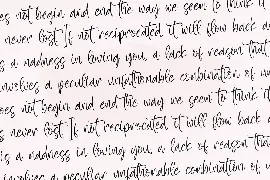 oes not begin and end the way we seem to think it
never lost. If not reciprocated it will flow back a
is a madness in loving you, a lack of reason that
involves a peculiar unfathomable combination of u
oes not begin and end the way we seem to think it
s never lost. If not reciprocated it will flow back a
is a madness in loving you, a lack of reason tha
involves a peculiar unfathomable combination of u